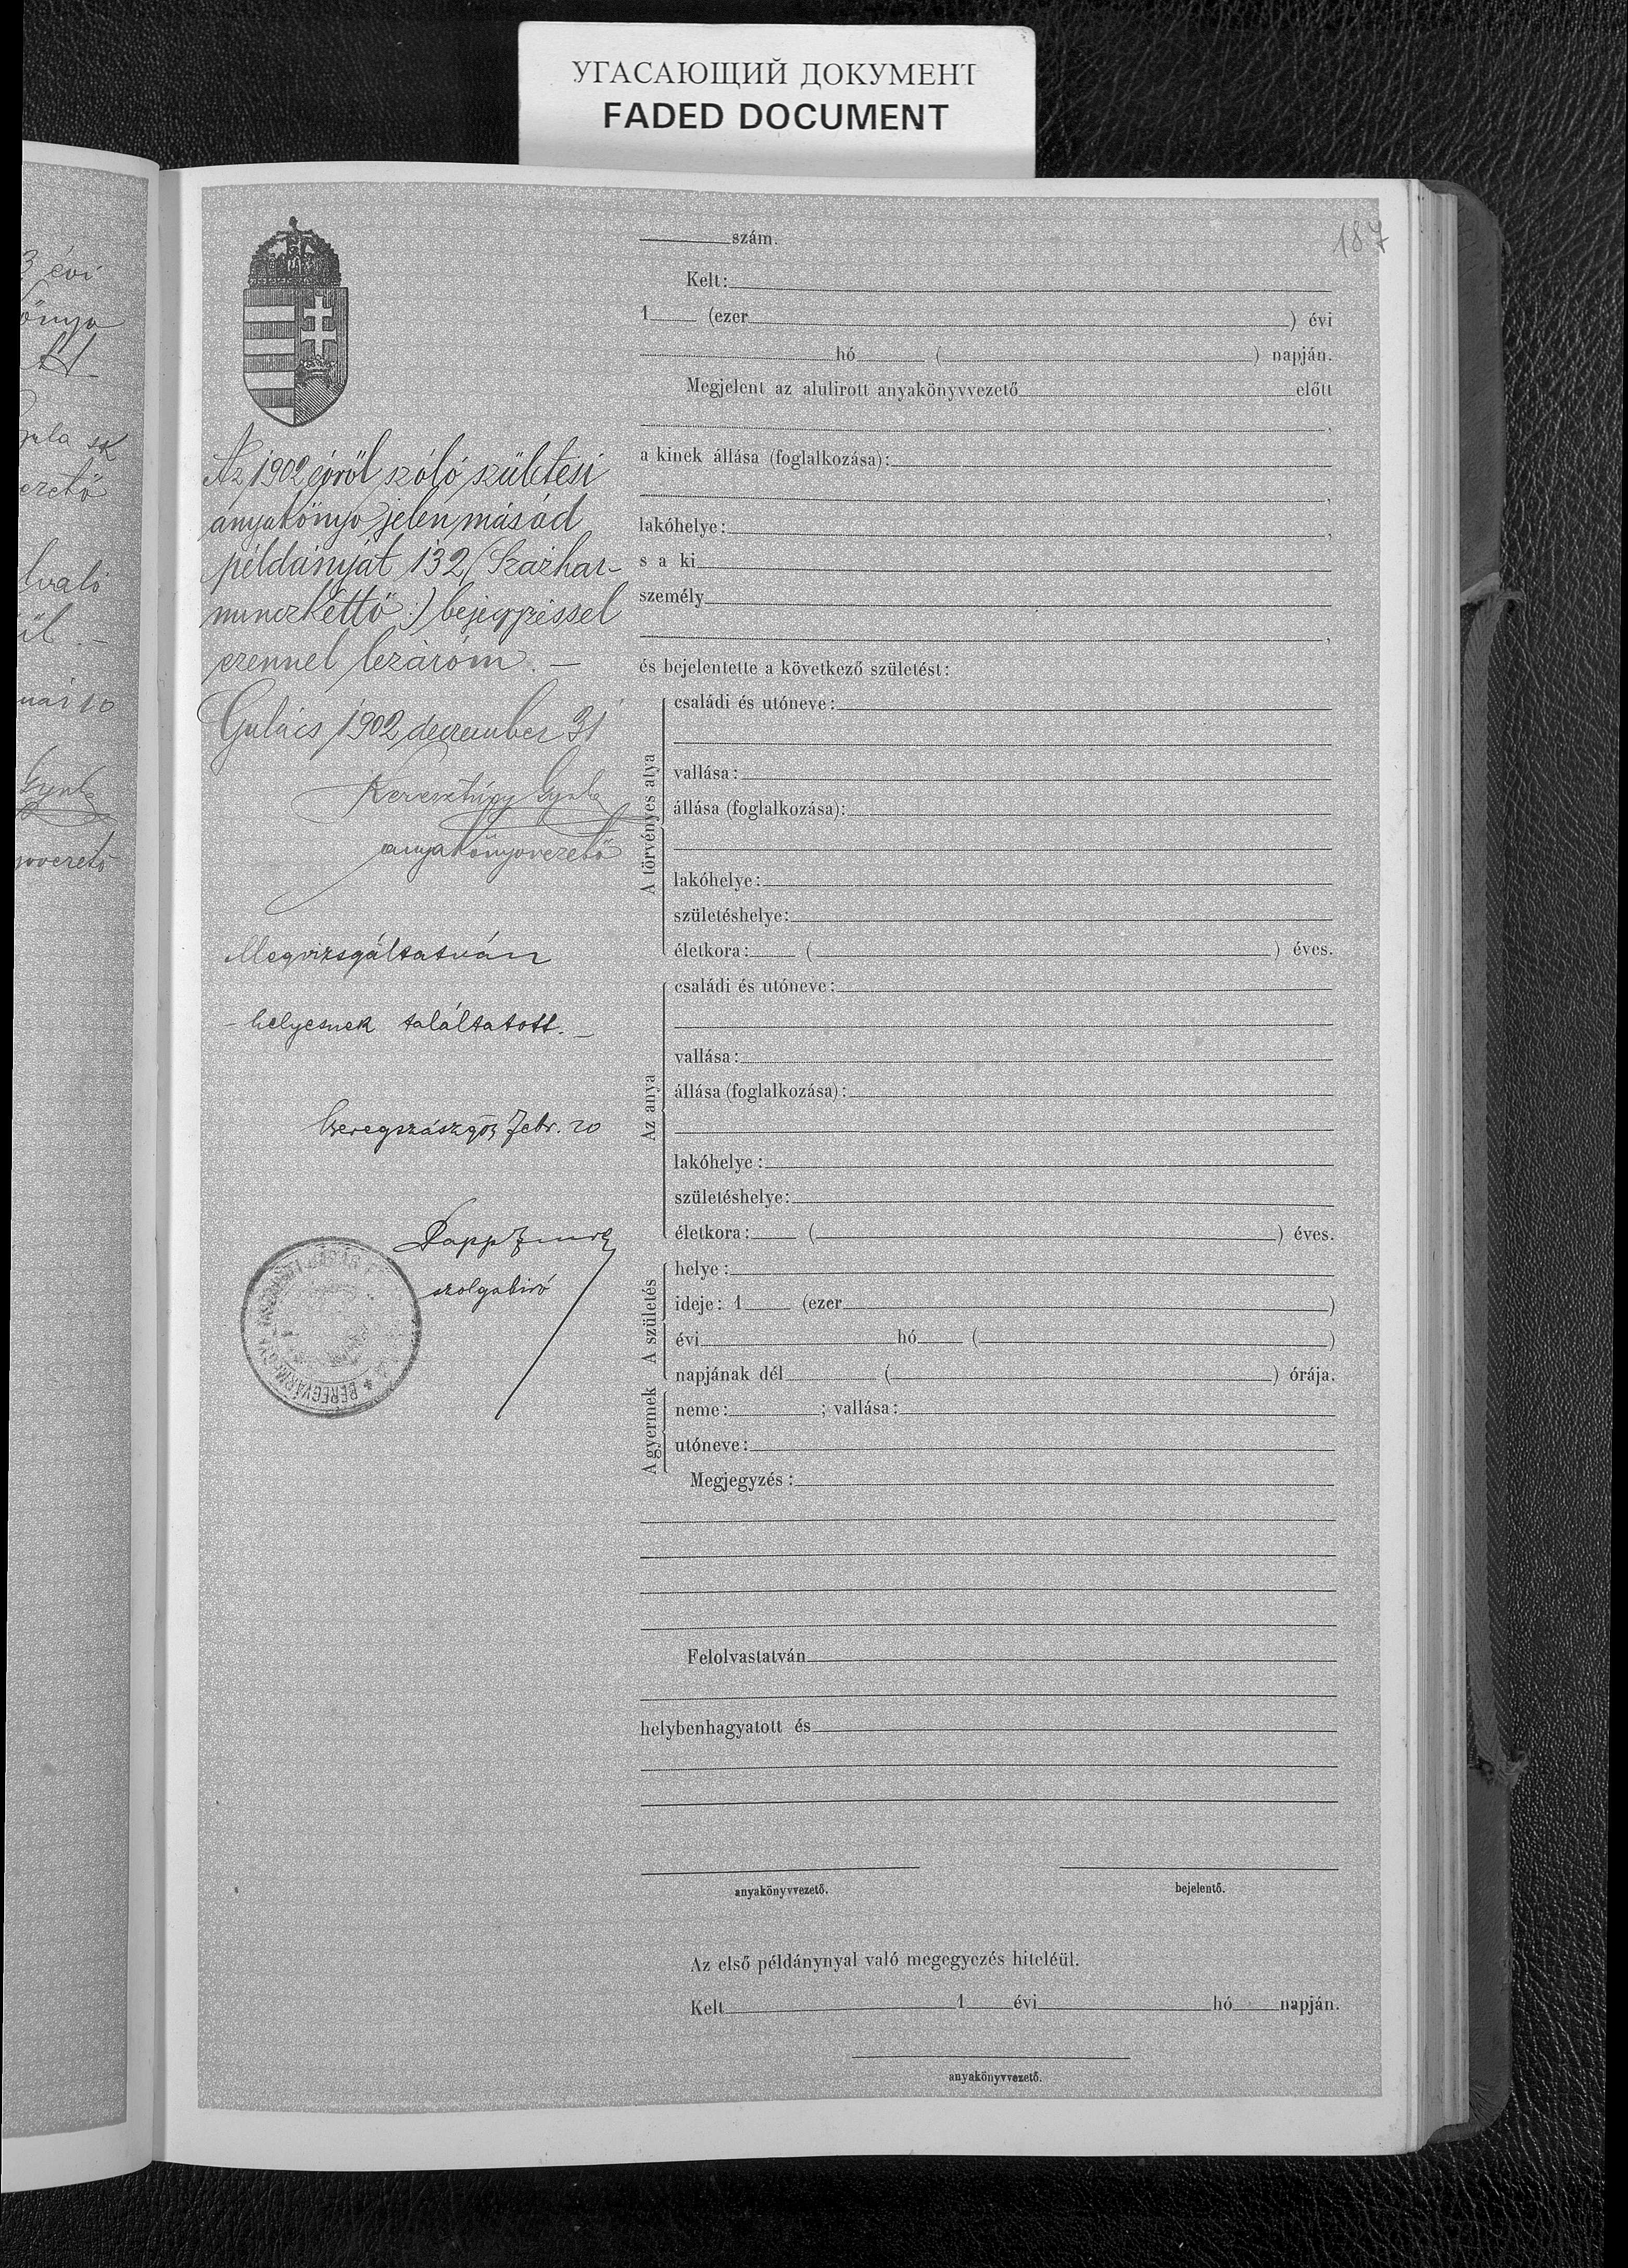 УГАСАЮЩИЙ ДОКУМЕНТ
FADED DOCUMENT
3 évi
ula sk
ezető
való
ül –
uár 10
Gyula
vezető
187
Az 1902 évről szóló születési
anyakönyv jelen másod
példányát 132 (: Százhar-
minczkettő :) bejegyzéssel
ezennel lezárom. –
Gulács 1902 december 31
Keresztúry Gyula
anyakönyvvezető
Megvizsgáltatván
helyesnek találtatott. –
Beregszász 903 Febr. 20
Papp Imre
szolgabiró
BEREGVÁRMEGYE
szám.
Kelt:
1 (ezer ) évi
hó ( ) napján.
Megjelent az alulirott anyakönyvvezető előtt
,
a kinek állása (foglalkozása):
,
lakóhelye: ,
s a ki
személy
,
és bejelentette a következő születést:
A törvényes atya
családi és utóneve:
vallása:
állása (foglalkozása):
lakóhelye:
születéshelye:
életkora: ( ) éves.
Az anya
családi és utóneve:
vallása:
állása (foglalkozása):
lakóhelye:
születéshelye:
életkora: ( ) éves.
A születés
helye:
ideje: 1 (ezer )
évi hó ( )
napjának dél ( ) órája.
A gyermek
neme: ; vallása:
utóneve:
Megjegyzés:
Felolvastatván
helybenhagyatott és
anyakönyvvezető. bejelentő.
Az első példánynyal való megegyezés hiteléül.
Kelt 1 évi hó napján.
anyakönyvvezető.